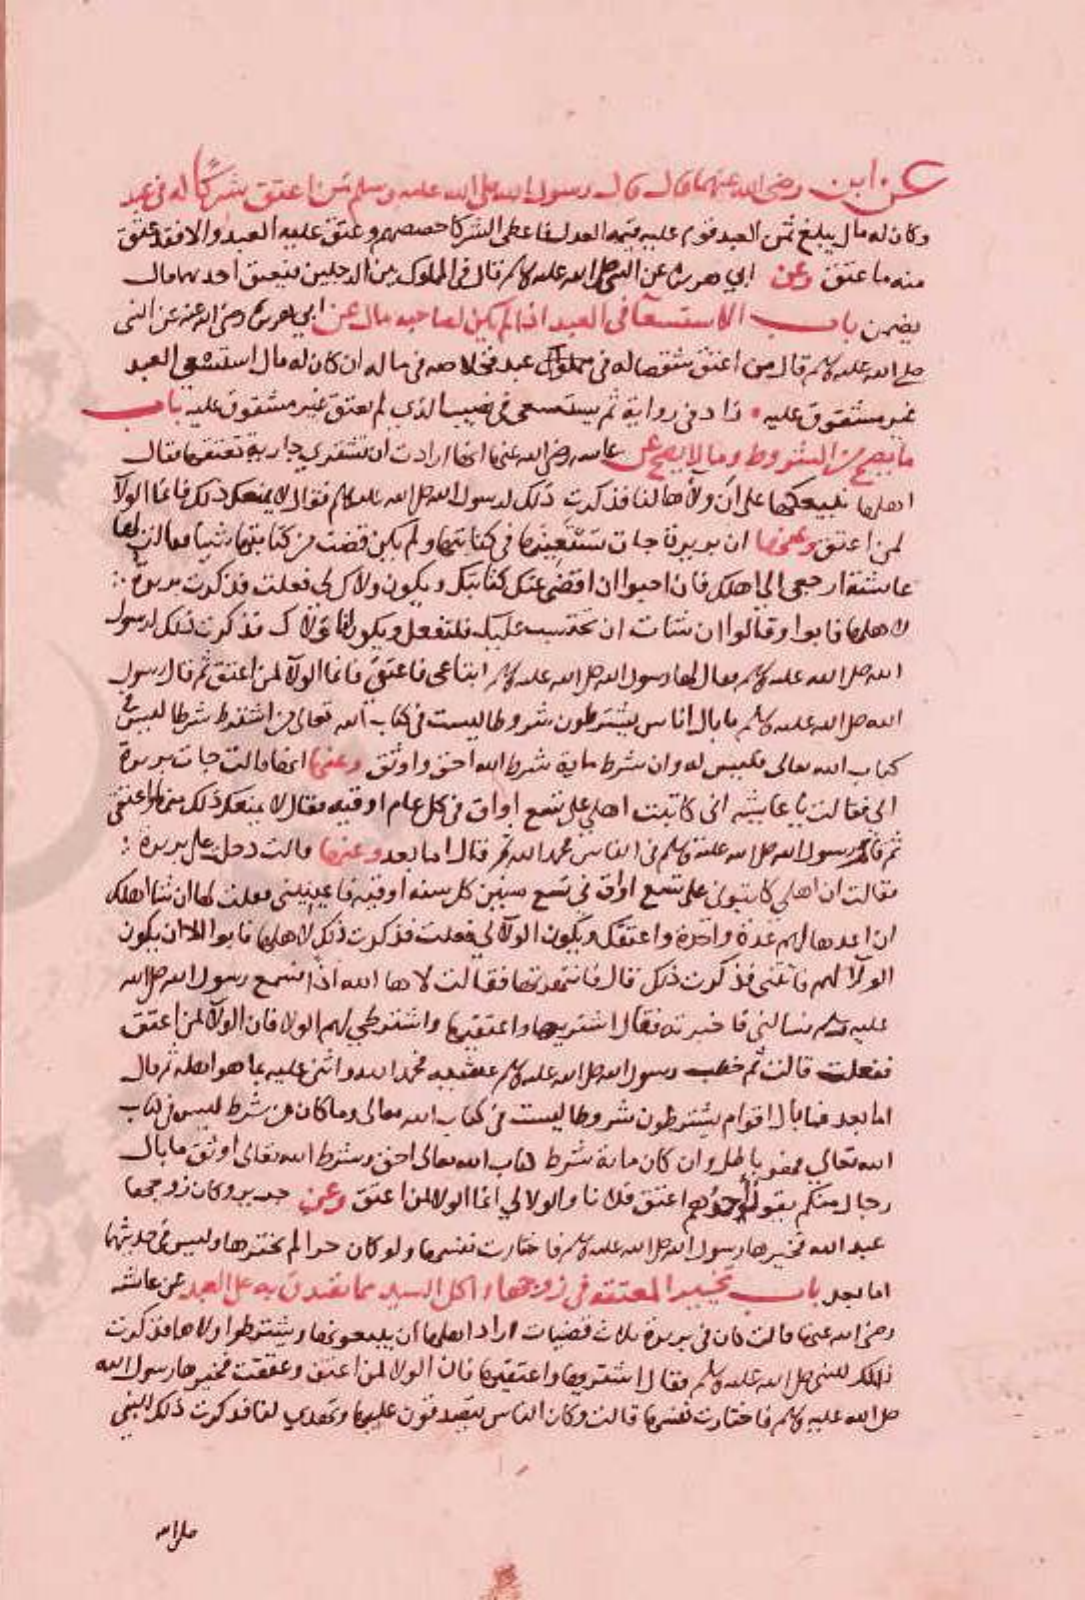 عن ابن رضي الله عنهما قال قال رسول الله صلى الله عليه وسلم من اعتق شركا له في عبد
وكان له مال يبلغ ثمن العبد قوم عليه قيمة العدل فاعطى الشركا حصصهم وعتق عليه العبد والا فقد عتق
منه ما عتق وعن ابي هريرة عن النبي صلى الله عليه وسلم قال في المملوك بين الرجلين فيعتق احدهما قال
يضمن باب الاستسعا في العبد اذا لم يكن لصاحبه مال عن ابي هريرة رضي الله عنه عن النبي
صلى الله عليه وسلم قال من اعتق شقصا له في عبد فخلاصه في ماله ان كان له مال استسعى العبد
غير مشقوق عليه زاد في رواية ثم يستسعى في نصيب الذي لم يعتق غير مشقوق عليه باب
ما يصح من الشروط وما لا يصح عن عايشة رضي الله عنها انها ارادت ان تشتري جارية تعتقها فقال
اهلها نبيعكها على ان ولاها لنا فذكرت ذلك لرسول الله صلى الله عليه وسلم فقال لا يمنعك ذلك فانما الولآ
لمن اعتق وعنها ان بريرة جات تستعينها في كتابتها ولم يكن قضت من كتابتها شيا فقالت لها
عائشة ارجعي الى اهلك فان احبوا ان اقضي عنك كتابتك ويكون ولاك لي فعلت فذكرت بريرة
لاهلها فابوا وقالوا ان شات ان تحتسب عليك فلتفعل ويكون لنا ولاك فذكرت ذلك لرسول
الله صلى الله عليه وسلم فقال لها رسول الله صلى الله عليه وسلم ابتاعي فاعتقي فانما الولآ لمن اعتق ثم قام رسول
الله صلى الله عليه وسلم ما بال اناس يشترطون شروطا ليست في كتاب الله تعالى من اشترط شرطا ليس في
كتاب الله تعالى فليس له وان شرط ماية شرط الله احق واوثق وعنها انها قالت جات بريرة
الي فقالت يا عايشة اني كاتبت اهلي على تسع اواق في كل عام اوقيه فقال لا يمنعك ذلك منها واعتقي
ثم قام رسول الله صلى الله عليه وسلم في الناس محمد الله ثم قال اما بعد وعنها قالت دخل على بريرة
فقالت ان اهلي كاتبوني على تسع اواق في تسع سنين كل سنه اوقيه فاعينيني فقلت لها ان شا اهلك
ان اعدها لهم عدة واحدة واعتقك ويكون الولآ لي فعلت فذكرت ذلك لاهلها فابوا الا ان يكون
الولآ لهم فاتتني فذكرت ذلك قال فانتهرتها فقالت لا ها الله اذا فسمع رسول الله صلى الله
عليه وسلم فسالني فاخبرته فقال اشتريها واعتقيها واشترطي لهم الولا فان الولآ لمن اعتق
ففعلت قالت ثم خطب رسول الله صلى الله عليه وسلم عشيه فحمد الله واثنى عليه بما هو اهله ثم قال
اما بعد فما بال اقوام يشترطون شروطا ليست في كتاب الله تعالى وما كان من شرط ليس في كتاب
الله تعالى فهو باطل وان كان ماية شرط كتاب الله تعالى احق وشرط الله تعالى اوثق ما بال
رجال منكم يقول احدهم اعتق فلانا والولا لي انما الولا لمن اعتق وعن جرير وكان زوجها
عبد الله فخيرها رسول الله صلى الله عليه وسلم فاختارت نفسها ولو كان حرا لم يخيرها وليس في حديثهما
اما بعد باب تخيير المعتقه في زوجها واكل السيد مما تصدق به على العبد عن عائشة
رضي الله عنها قالت كان في بريرة ثلاث قضيات اراد اهلها ان يبيعوها ويشترطوا ولاها فذكرت
ذلك للنبي صلى الله عليه وسلم فقال اشتريها واعتقيها فان الولا لمن اعتق وعتقت فخيرها رسول الله
صلى الله عليه وسلم فاختارت نفسها قالت وكان الناس يتصدقون عليها وتهدي لنا فذكرت ذلك للنبي
صلى الله